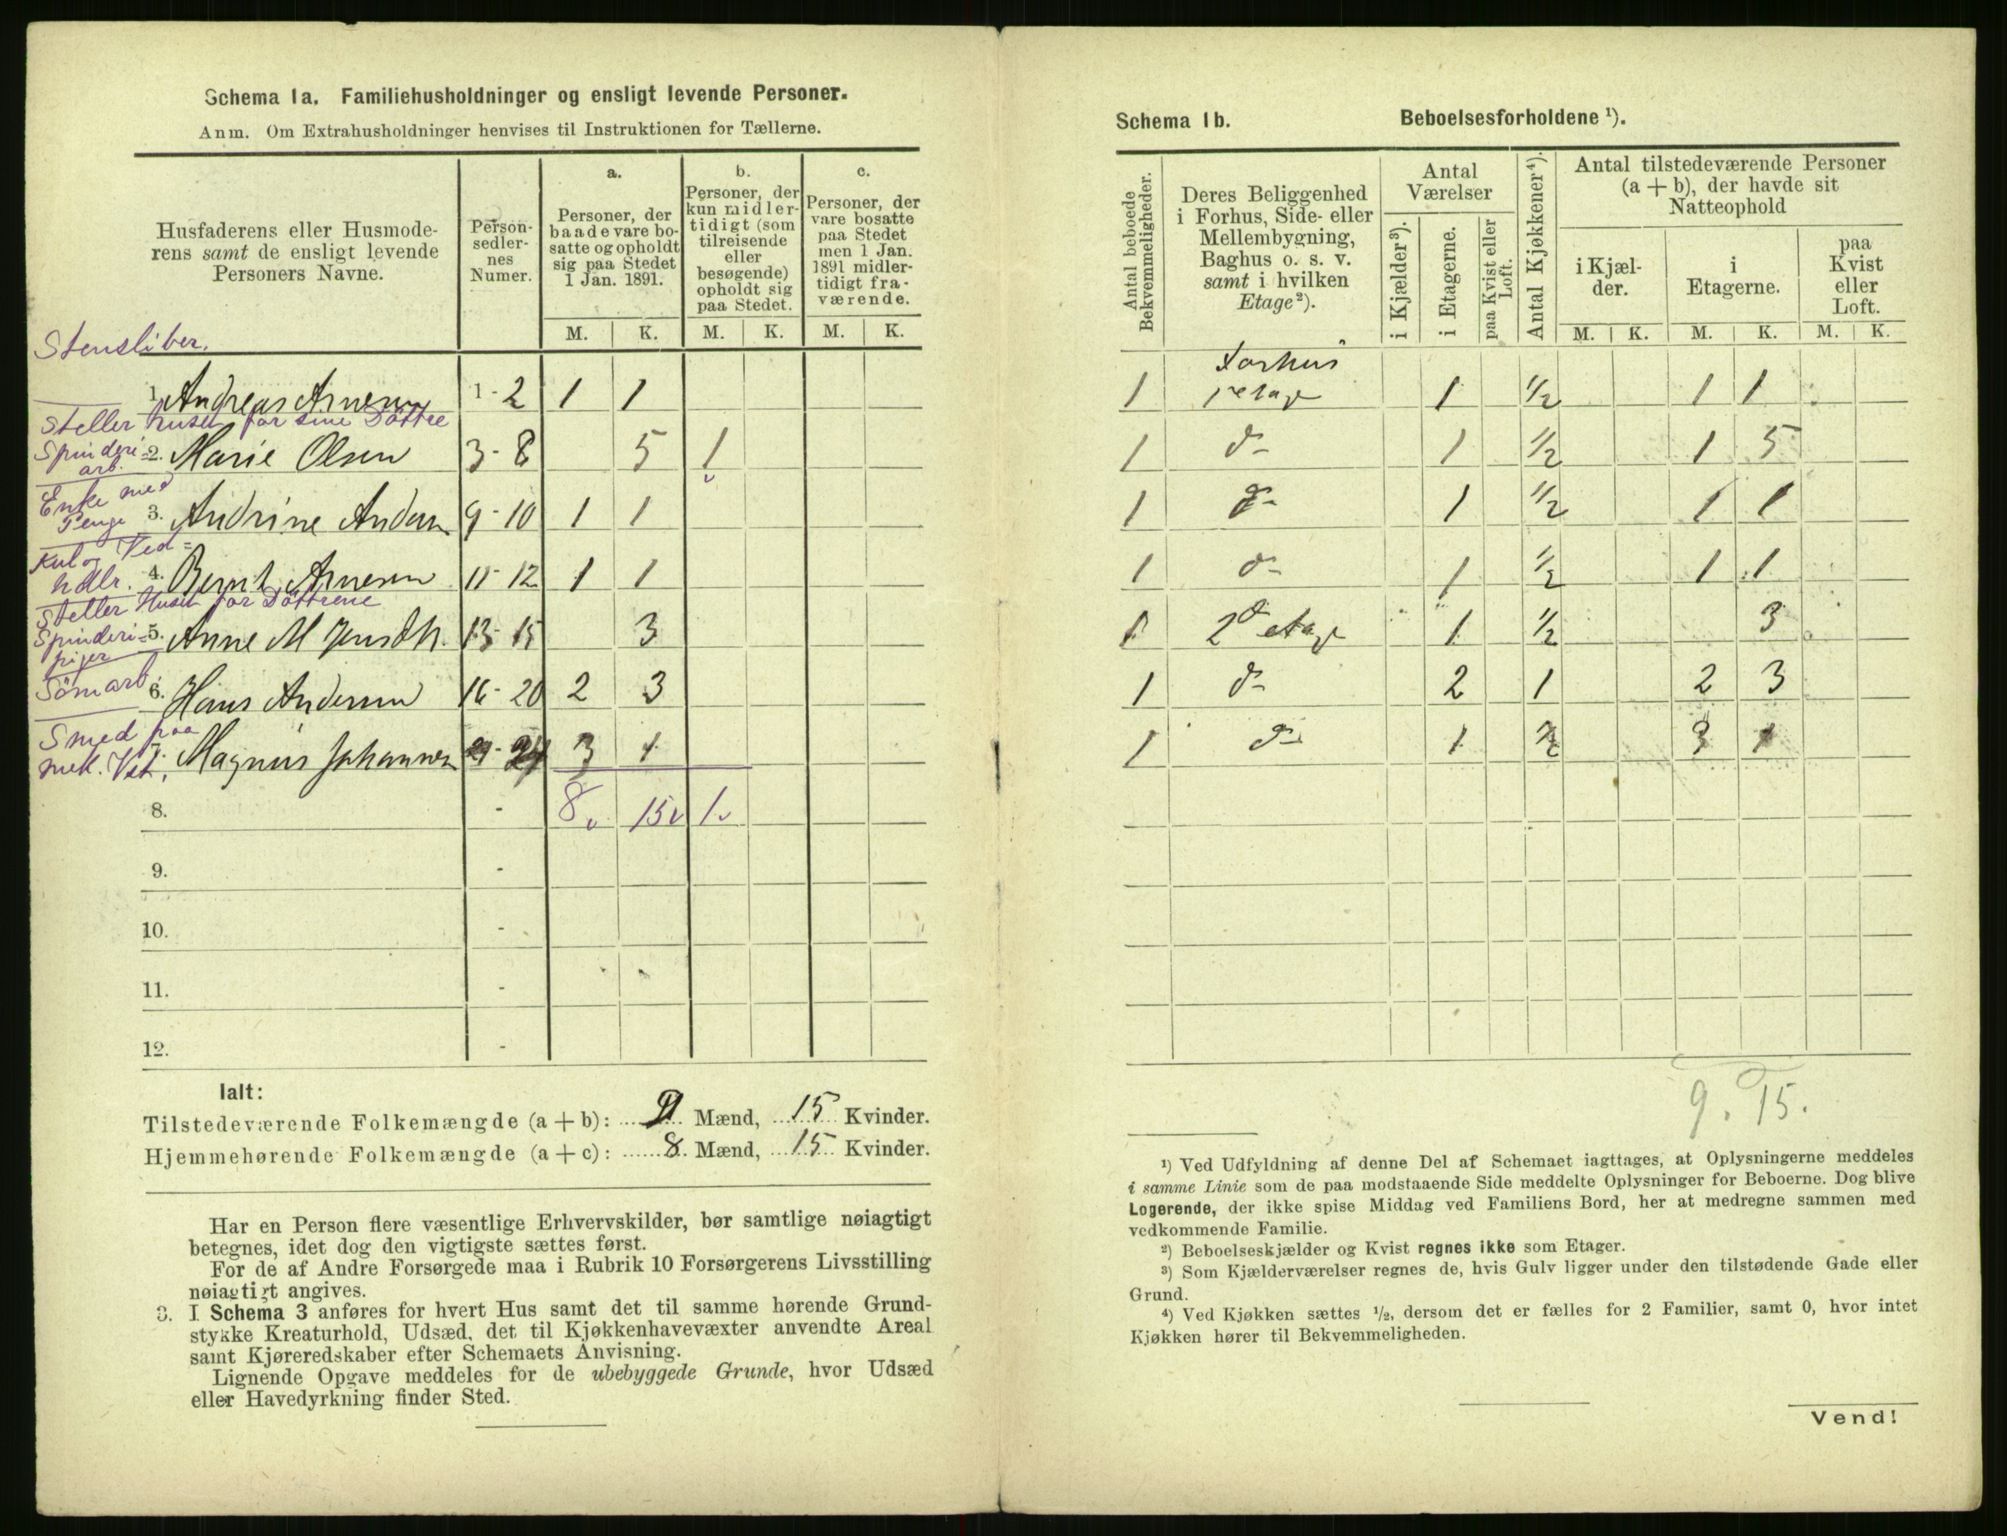 Schema 1a. Familiehusholdninger og ensligt levende Personer.
Anm. Om Extrahusholdninger henvises til Instruktionen for Tællerne.
Husfaderens eller Husmoderens samt de ensligt levende Personers Navne.
Personsedlernes Numer.
a.
Personer, der baade vare bosatte og opholdt sig paa Stedet 1 Jan. 1891.
b.
Personer, der kun midlertidigt (som tilreisende eller besøgende) opholdt sig paa Stedet.
c.
Personer, der vare bosatte paa Stedet men 1 Jan. 1891 midlertidigt fraværende.
M. K. M. K. M. K.
Stensliber.
1. Andreas Arnesen 1 - 2 1 1
Steller huset for sine Döttre
Spinderi=arb.
2. Marie Olsen 3 - 8 5 1
Enke med Penge
3. Andrine Andersn 9 - 10 1 1
Kul og Ved=hdlr.
4. Bernt Arnesen 11 - 12 1 1
Steller Huset for Döttrene
Spinderi=piger
5. Anne M Jensdtr. 13 - 15 3
Sömarb.
6. Hans Andersen 16 - 20 2 3
Smed paa mek. Vst.
7. Magnus Johannesen 21 - 24 3 1
8. - 8 15 1
9. -
10. -
11. -
12. -
Ialt:
Tilstedeværende Folkemængde (a + b): 9 Mænd, 15 Kvinder.
Hjemmehørende Folkemængde (a + c): 8 Mænd, 15 Kvinder.
Har en Person flere væsentlige Erhvervskilder, bør samtlige nøiagtigt
betegnes, idet dog den vigtigste sættes først.
For de af Andre Forsørgede maa i Rubrik 10 Forsørgerens Livsstilling
nøiagtigt angives.
3. I Schema 3 anføres for hvert Hus samt det til samme hørende Grund-
stykke Kreaturhold, Udsæd, det til Kjøkkenhavevæxter anvendte Areal
samt Kjøreredskaber efter Schemaets Anvisning.
Lignende Opgave meddeles for de ubebyggede Grunde, hvor Udsæd
eller Havedyrkning finder Sted.
Schema 1b. Beboelsesforholdene ¹).
Antal beboede Bekvemmeligheder.
Deres Beliggenhed i Forhus, Side- eller Mellembygning, Baghus o. s. v. samt i hvilken Etage ²).
Antal Værelser
i Kjælder ³).
i Etagerne.
paa Kvist eller Loft.
Antal Kjøkkener ⁴).
Antal tilstedeværende Personer (a + b), der havde sit Natteophold
i Kjælder.
i Etagerne.
paa Kvist eller Loft.
M. K. M. K. M. K.
1 Forhus 1 etage 1 ½ 1 1
1 do 1 ½ 1 5
1 do 1 ½ 1 1
1 do 1 ½ 1 1
1 2d etage 1 ½ 3
1 do 2 1 2 3
1 do 1 ½ 3 1
9. 15.
¹) Ved Udfyldning af denne Del af Schemaet iagttages, at Oplysningerne meddeles
i samme Linie som de paa modstaaende Side meddelte Oplysninger for Beboerne. Dog blive
Logerende, der ikke spise Middag ved Familiens Bord, her at medregne sammen med
vedkommende Familie.
²) Beboelseskjælder og Kvist regnes ikke som Etager.
³) Som Kjælderværelser regnes de, hvis Gulv ligger under den tilstødende Gade eller
Grund.
⁴) Ved Kjøkken sættes ½, dersom det er fælles for 2 Familier, samt 0, hvor intet
Kjøkken hører til Bekvemmeligheden.
Vend!